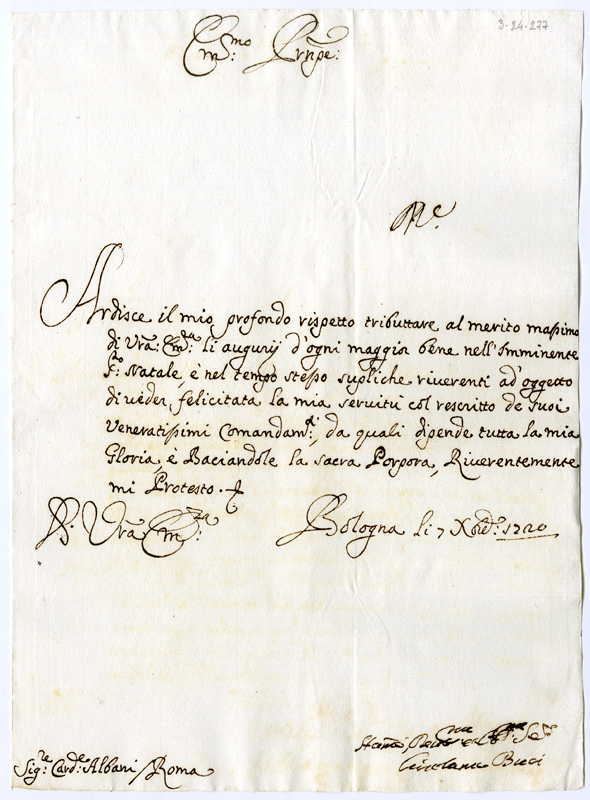 3-24-277
Em:mo Prnpe:
Ardisce il mio profondo rispetto tributtare al merito massimo
di Vra: Em:za li augurij d'ogni maggior bene nell'Imminente
S:to Natale, è nel tempo stesso supliche riverenti ad'oggetto
di veder, felicitata la mia servitù col rescritto de Suoi
Veneratissimi Comandam:ti, da quali dipende tutta la mia
Gloria, è Baciandole la sacra Porpora, Riverentemente
mi Protesto.
Vra Em:za
Bologna li 7 Xbre: 1720
Sig:re Card:le Albani / Roma